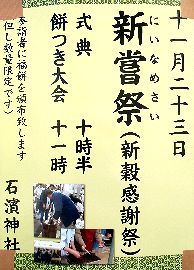 十一月二十三日
にいなめさい
新嘗祭(新穀感謝祭)
式典 十時半
餅つき大会 十一時
参詣者に福餅を頒布致します
(但し数量限定です)
石濱神社